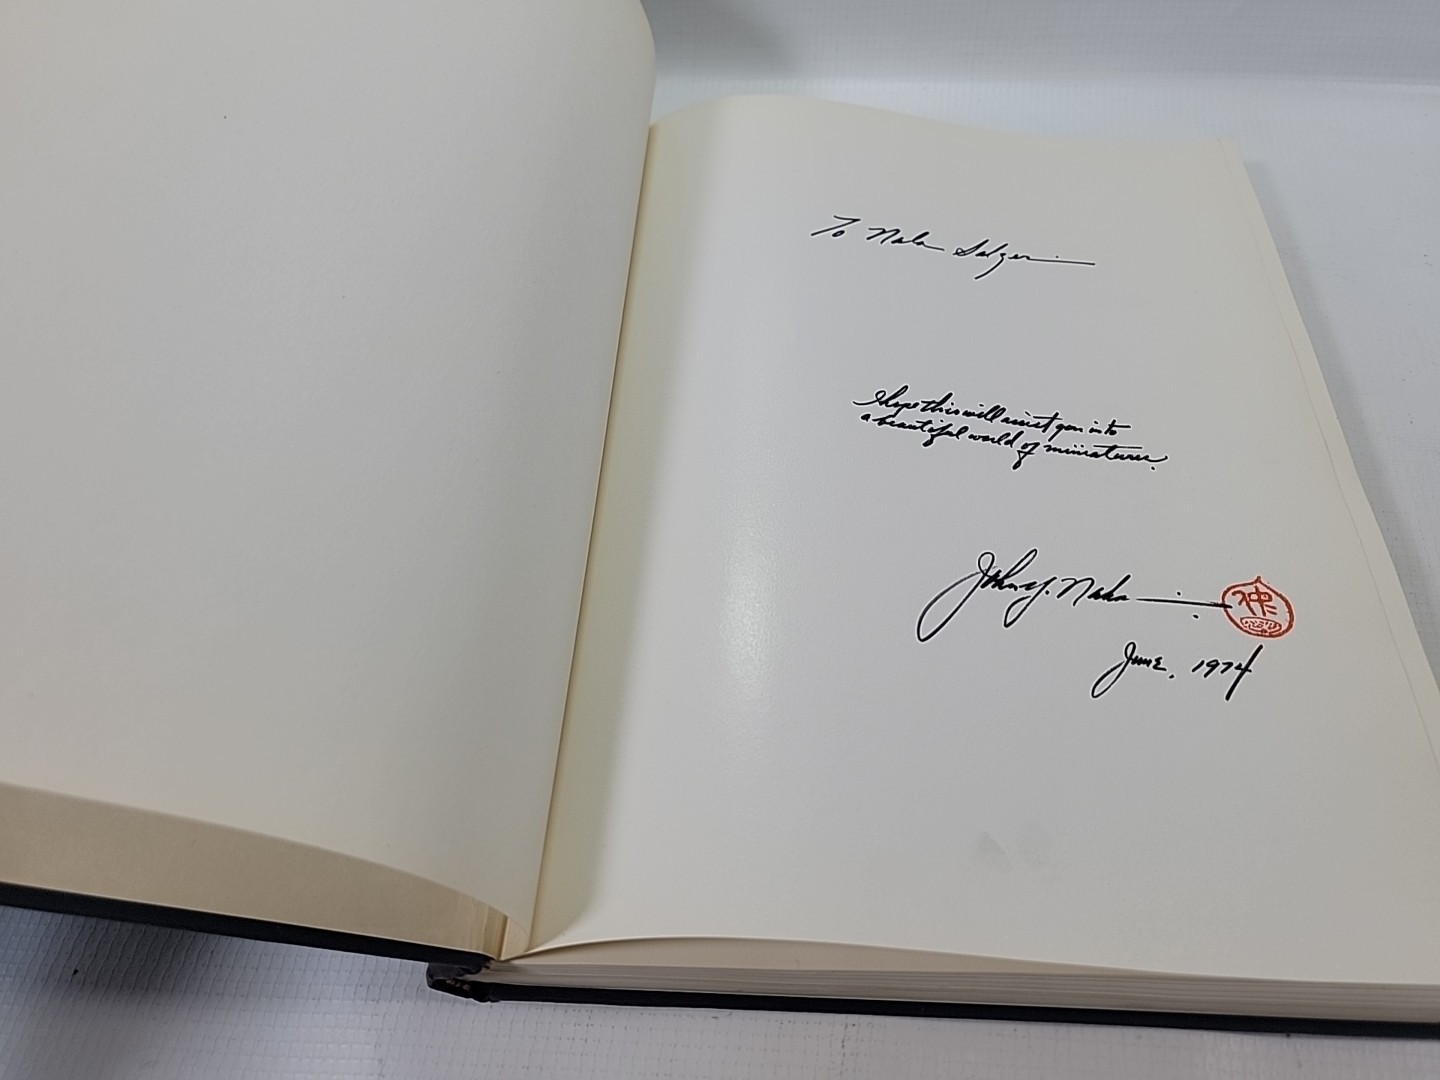 To Nola Salzer
I hope this will assist you into
a beautiful world of miniatures.
John Y. Naka
June, 1974